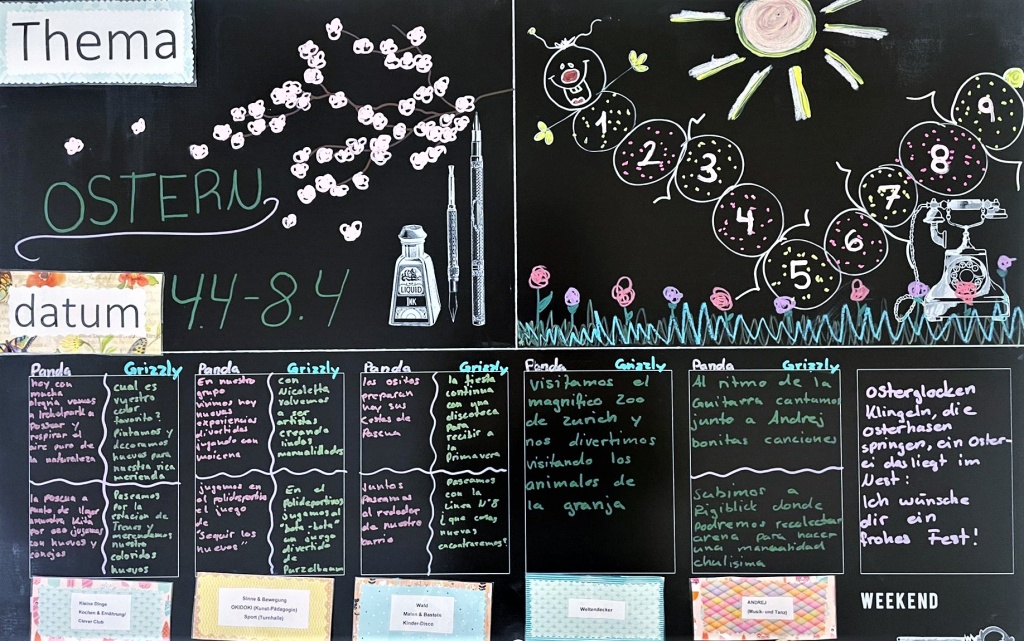 Thema
OSTERN
datum
4.4-8.4
LIQUID
INK
1
2
3
4
5
6
7
8
9
Panda
Grizzly
hoy con
mucha
alegria vamos
a Irchelpark a
Pasear y
respirar el
aire puro de
la naturaleza
cual es
vuestro
color
favorito?
Pintamos y
decoramos
huevos para
nuestra rica
merienda
la pascua a
punto de llegar
a nuestra Kita
por eso jugamos
con huevos y
conejos
Paseamos
por la
estacion de
Trenes y
merendamos
nuestro
coloridos
huevos
Panda
Grizzly
En nuestro
grupo
vivimos hoy
nuevas
experiencias
divertida
jugando con
maicena
con
Nicoletta
volvemos
a ser
artistas
creando
lindas
manualidades
jugamos en
el polideportivo
el juego
de
"Seguir los
huevos"
En el
Polideportivo
jugamos al
un juego
divertido
de
Purzelbaum
Panda
Grizzly
los ositos
preparan
hoy sus
cestas de
Pascua
la fiesta
continua
con una
discoteca
Para
recibir a
la
Primavera
Juntos
Paseamos
al rededor
de nuestro
barrio
Paseamos
con la
Linea N°8
¿que cosas
nuevas
encontraremos?
Panda
Grizzly
visitamos el
magnifico Zoo
de Zurich y
nos divertimos
visitando los
animales de
la granja
Panda
Grizzly
Al ritmo de la
Guitarra cantamos
junto a Andrej
bonitas canciones
Subimos a
Rigiblick donde
podremos recolectar
arena para hacer
una manualidad
chulisima
Osterglocken
Klingeln, die
Osterhasen
springen, ein Oster-
ei das liegt im
Nest:
Ich wünsche
dir ein
frohes Fest!
Kleine Dinge
Kochen & Ernährung/
Clever Club
Sinne & Bewegung
OKIDOKI (Kunst-Pädagogin)
Sport (Turnhalle)
Wald
Malen & Basteln
Kinder-Disco
Weltendecker
ANDREJ
(Musik- und Tanz)
WEEKEND